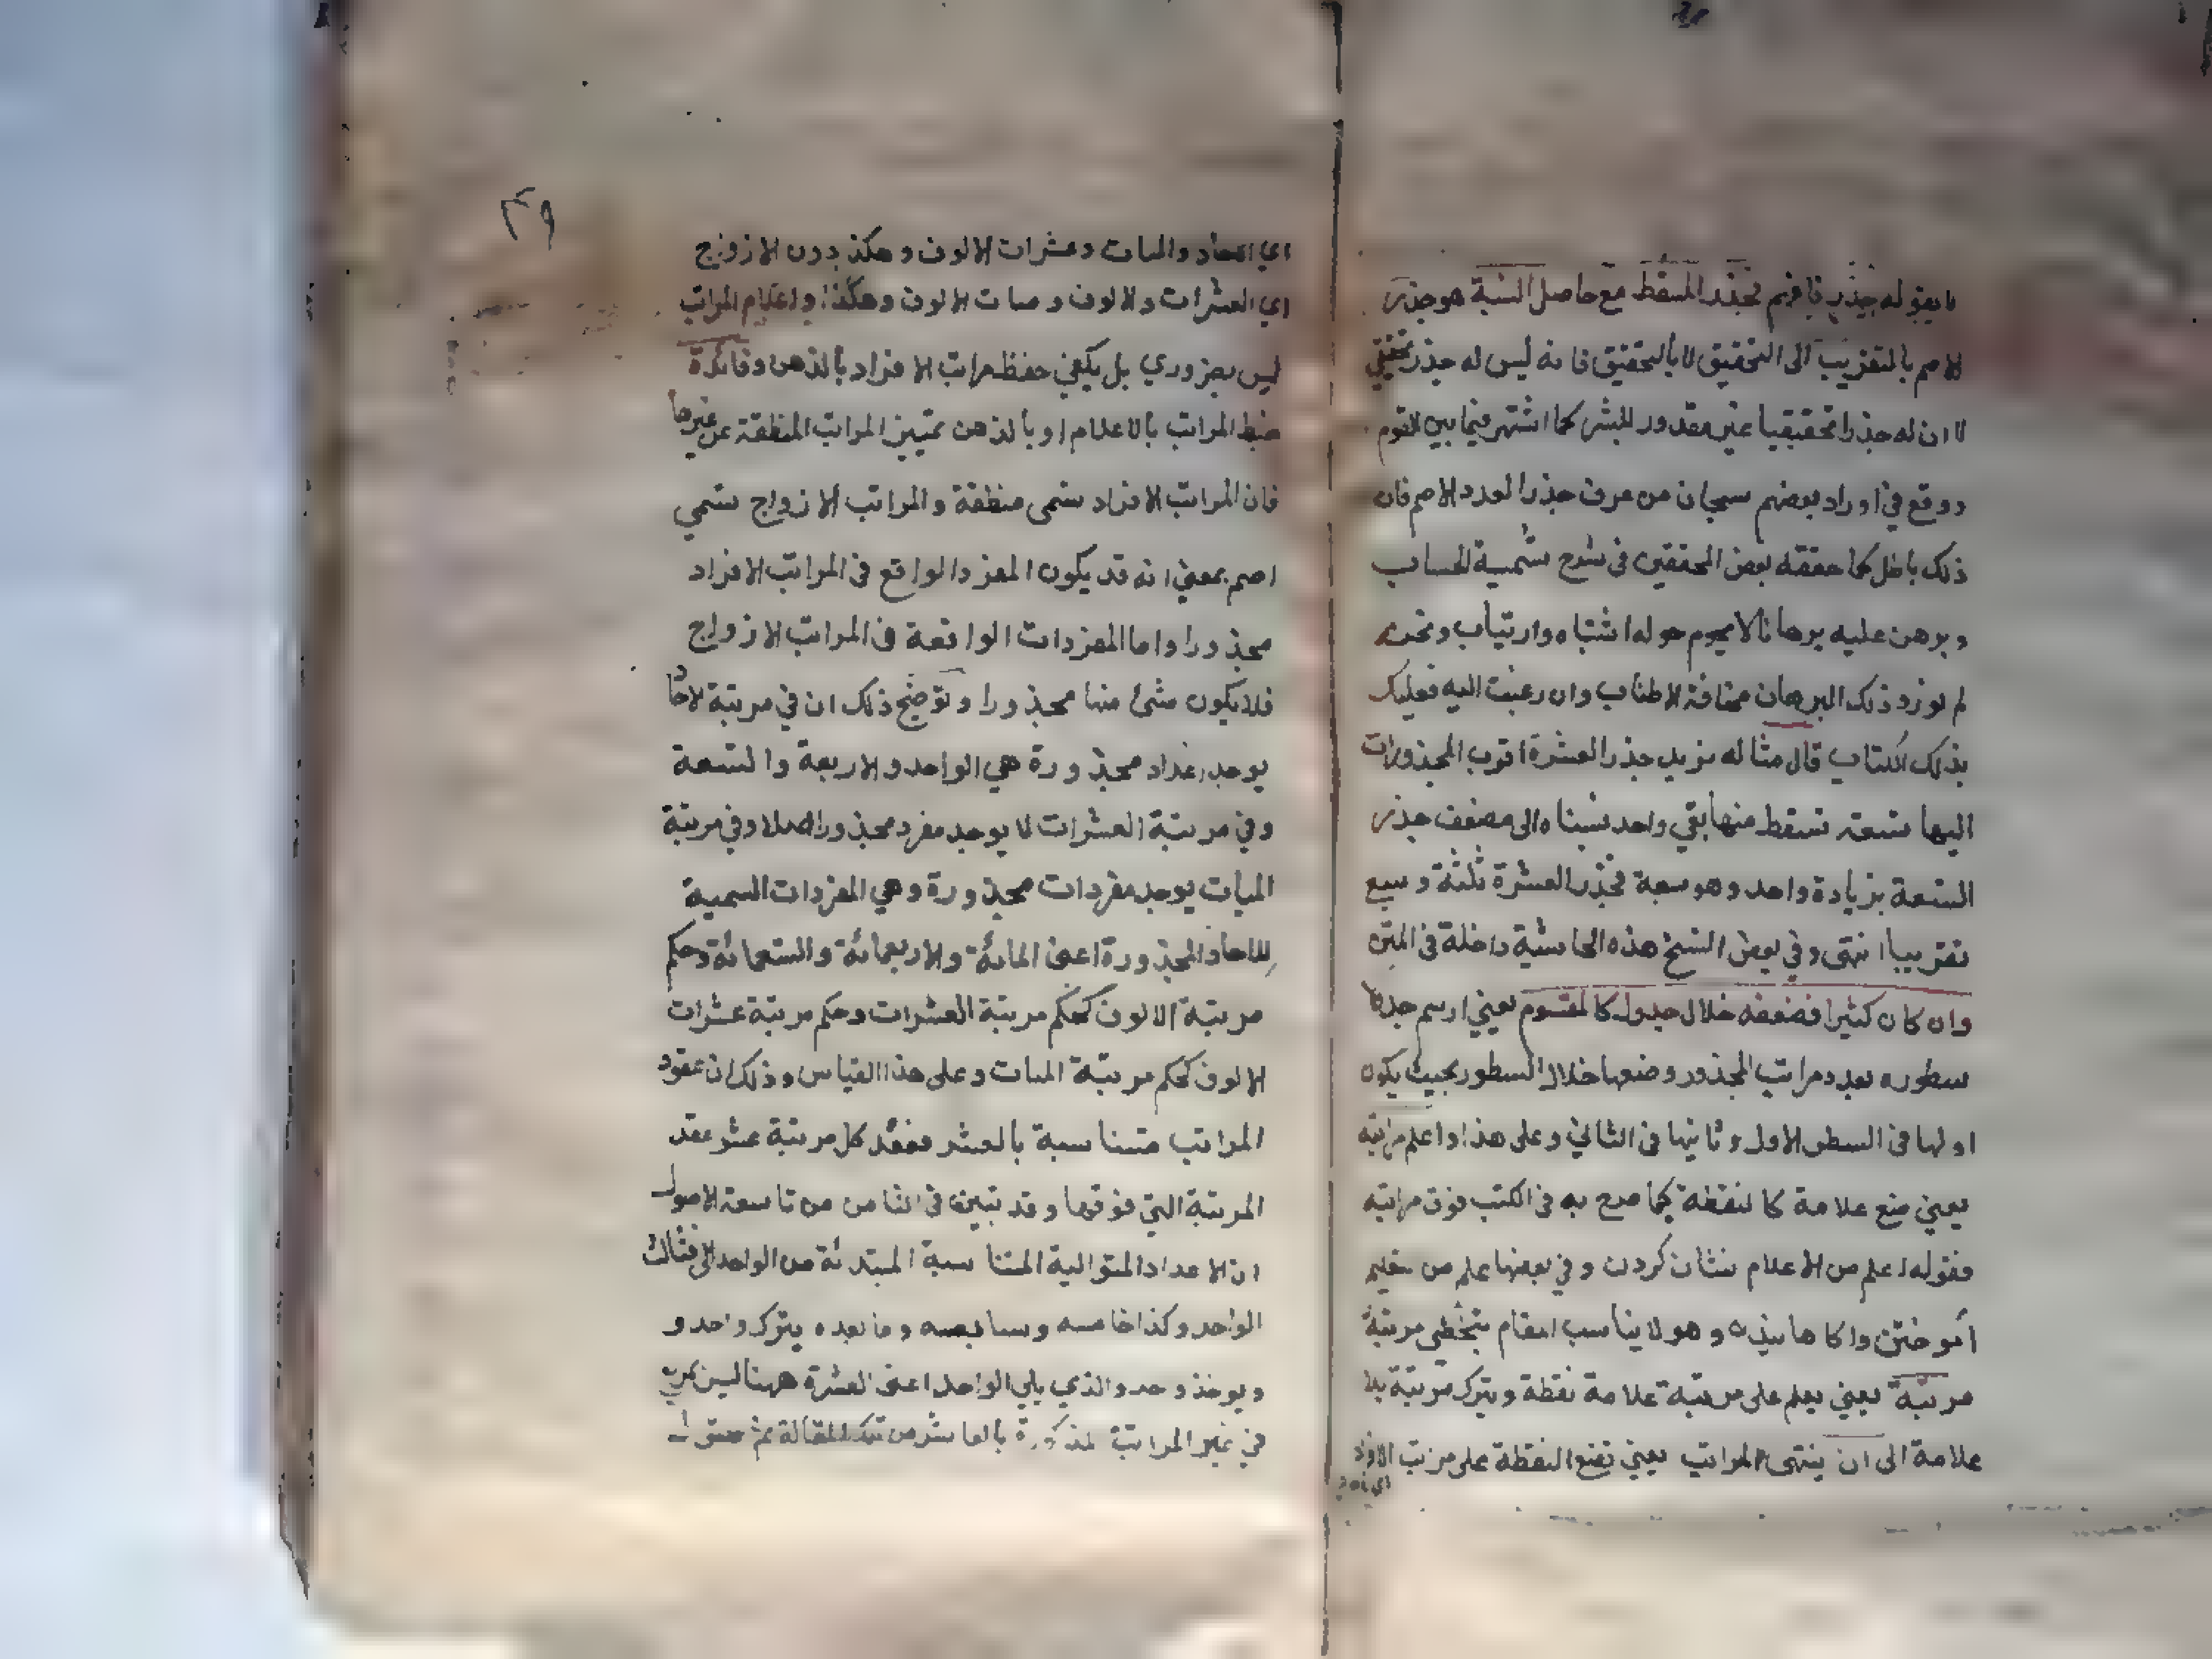 ما يقوله جذر فافهم فجذر المسقط مع حاصل النسبة هو جذر
الاصم بالتقريب الى التحقيق لا بالتحقيق فانه ليس له جذر تحقيقي
لا ان له جذرا تحقيقيا غير مقدور للبشر كما اشتهر فيما بين القوم
ووقع في اوراد بعضهم سبحان من عرف جذر العدد الاصم فان
ذلك باطل كما حققه بعض المحققين في شرح شمسية الحساب
وبرهن عليه برهانا لا يحوم حوله اشتباه وارتياب ونحن
لم نورد ذلك البرهان مخافة الاطناب وان رغبت اليه فعليك
بذلك الكتاب قال مثاله نريد جذر العشرة اقرب المجذورات
اليها تسعة تسقط منها بقي واحد نسبناه الى مضعف جذر
التسعة بزيادة واحد وهو سبعة فجذر العشرة ثلثة وسبع
تقريبا انتهى وفي بعض النسخ هذه الحاشية داخلة في المتن
وان كان كثيرا فضعفه خلال جدول كالمقسوم يعني ارسم جدولا
سطوره بعدد مراتب المجذور وضعها خلال السطور بحيث يكون
اولها في السطر الاول وثانيها في الثاني وعلى هذا واعلم مراتبه
يعني ضع علامة كالنقطة كما صرح به في الكتب فوق مراتبه
فقوله اعلم من الاعلام نشان كردن وفي بعضها علم من تعليم
آموختن واكاهانيدن وهو لا يناسب المقام بتخطي مرتبة
مرتبة يعني يعلم على مرتبة علامة نقطة ويترك مرتبة بلا
علامة الى ان ينتهي المراتب يعني تقع النقطة على مرتب الافراد
٣٩
اي الاحاد والمات وعشرات الالوف وهكذ دون الازواج
اي العشرات والالوف ومات الالوف وهكذا واعلام المراتب
ليس بضروري بل يكفي حفظ مراتب الافراد بالذهن وفائدة
ضبط المراتب بالاعلام او بالذهن تمييز المراتب المنطقة عن غيرها
فان المراتب الافراد تسمى منطقة والمراتب الازواج تسمي
اصم بمعني انه قد يكون المفرد الواقع في المراتب الافراد
مجذورا واما المفردات الواقعة في المراتب الازواج
فلا يكون شئ منها مجذورا وتوضيح ذلك ان في مرتبة الاحاد
يوجد اعداد مجذورة هي الواحد والاربعة والتسعة
وفي مرتبة العشرات لا يوجد مفرد مجذور اصلا وفي مرتبة
الميات يوجد مفردات مجذورة وهي المفردات السمية
للاحاد المجذورة اعني المائة والاربعمائة والتسعمائة وحكم
مرتبة الالوف كحكم مرتبة العشرات وحكم مرتبة عشرات
الالوف كحكم مرتبة المات وعلى هذا القياس وذلك ان عقود
المراتب متناسبة بالعشر فعقد كل مرتبة عشر عقد
المرتبة التي فوقها وقد تبين في الثامن من تاسعة الاصول
ان الاعداد المتوالية المتناسبة المبتدئة من الواحد فثالث
الواحد وكذا خامسه وسابعه وما بعده يترك واحد و
ويوخذ وحد والذي يلي الواحد اعني العشرة ههنا ليس بمربع
في غير المراتب المذكورة بالعاشر من تلك المقالة ثم نقول